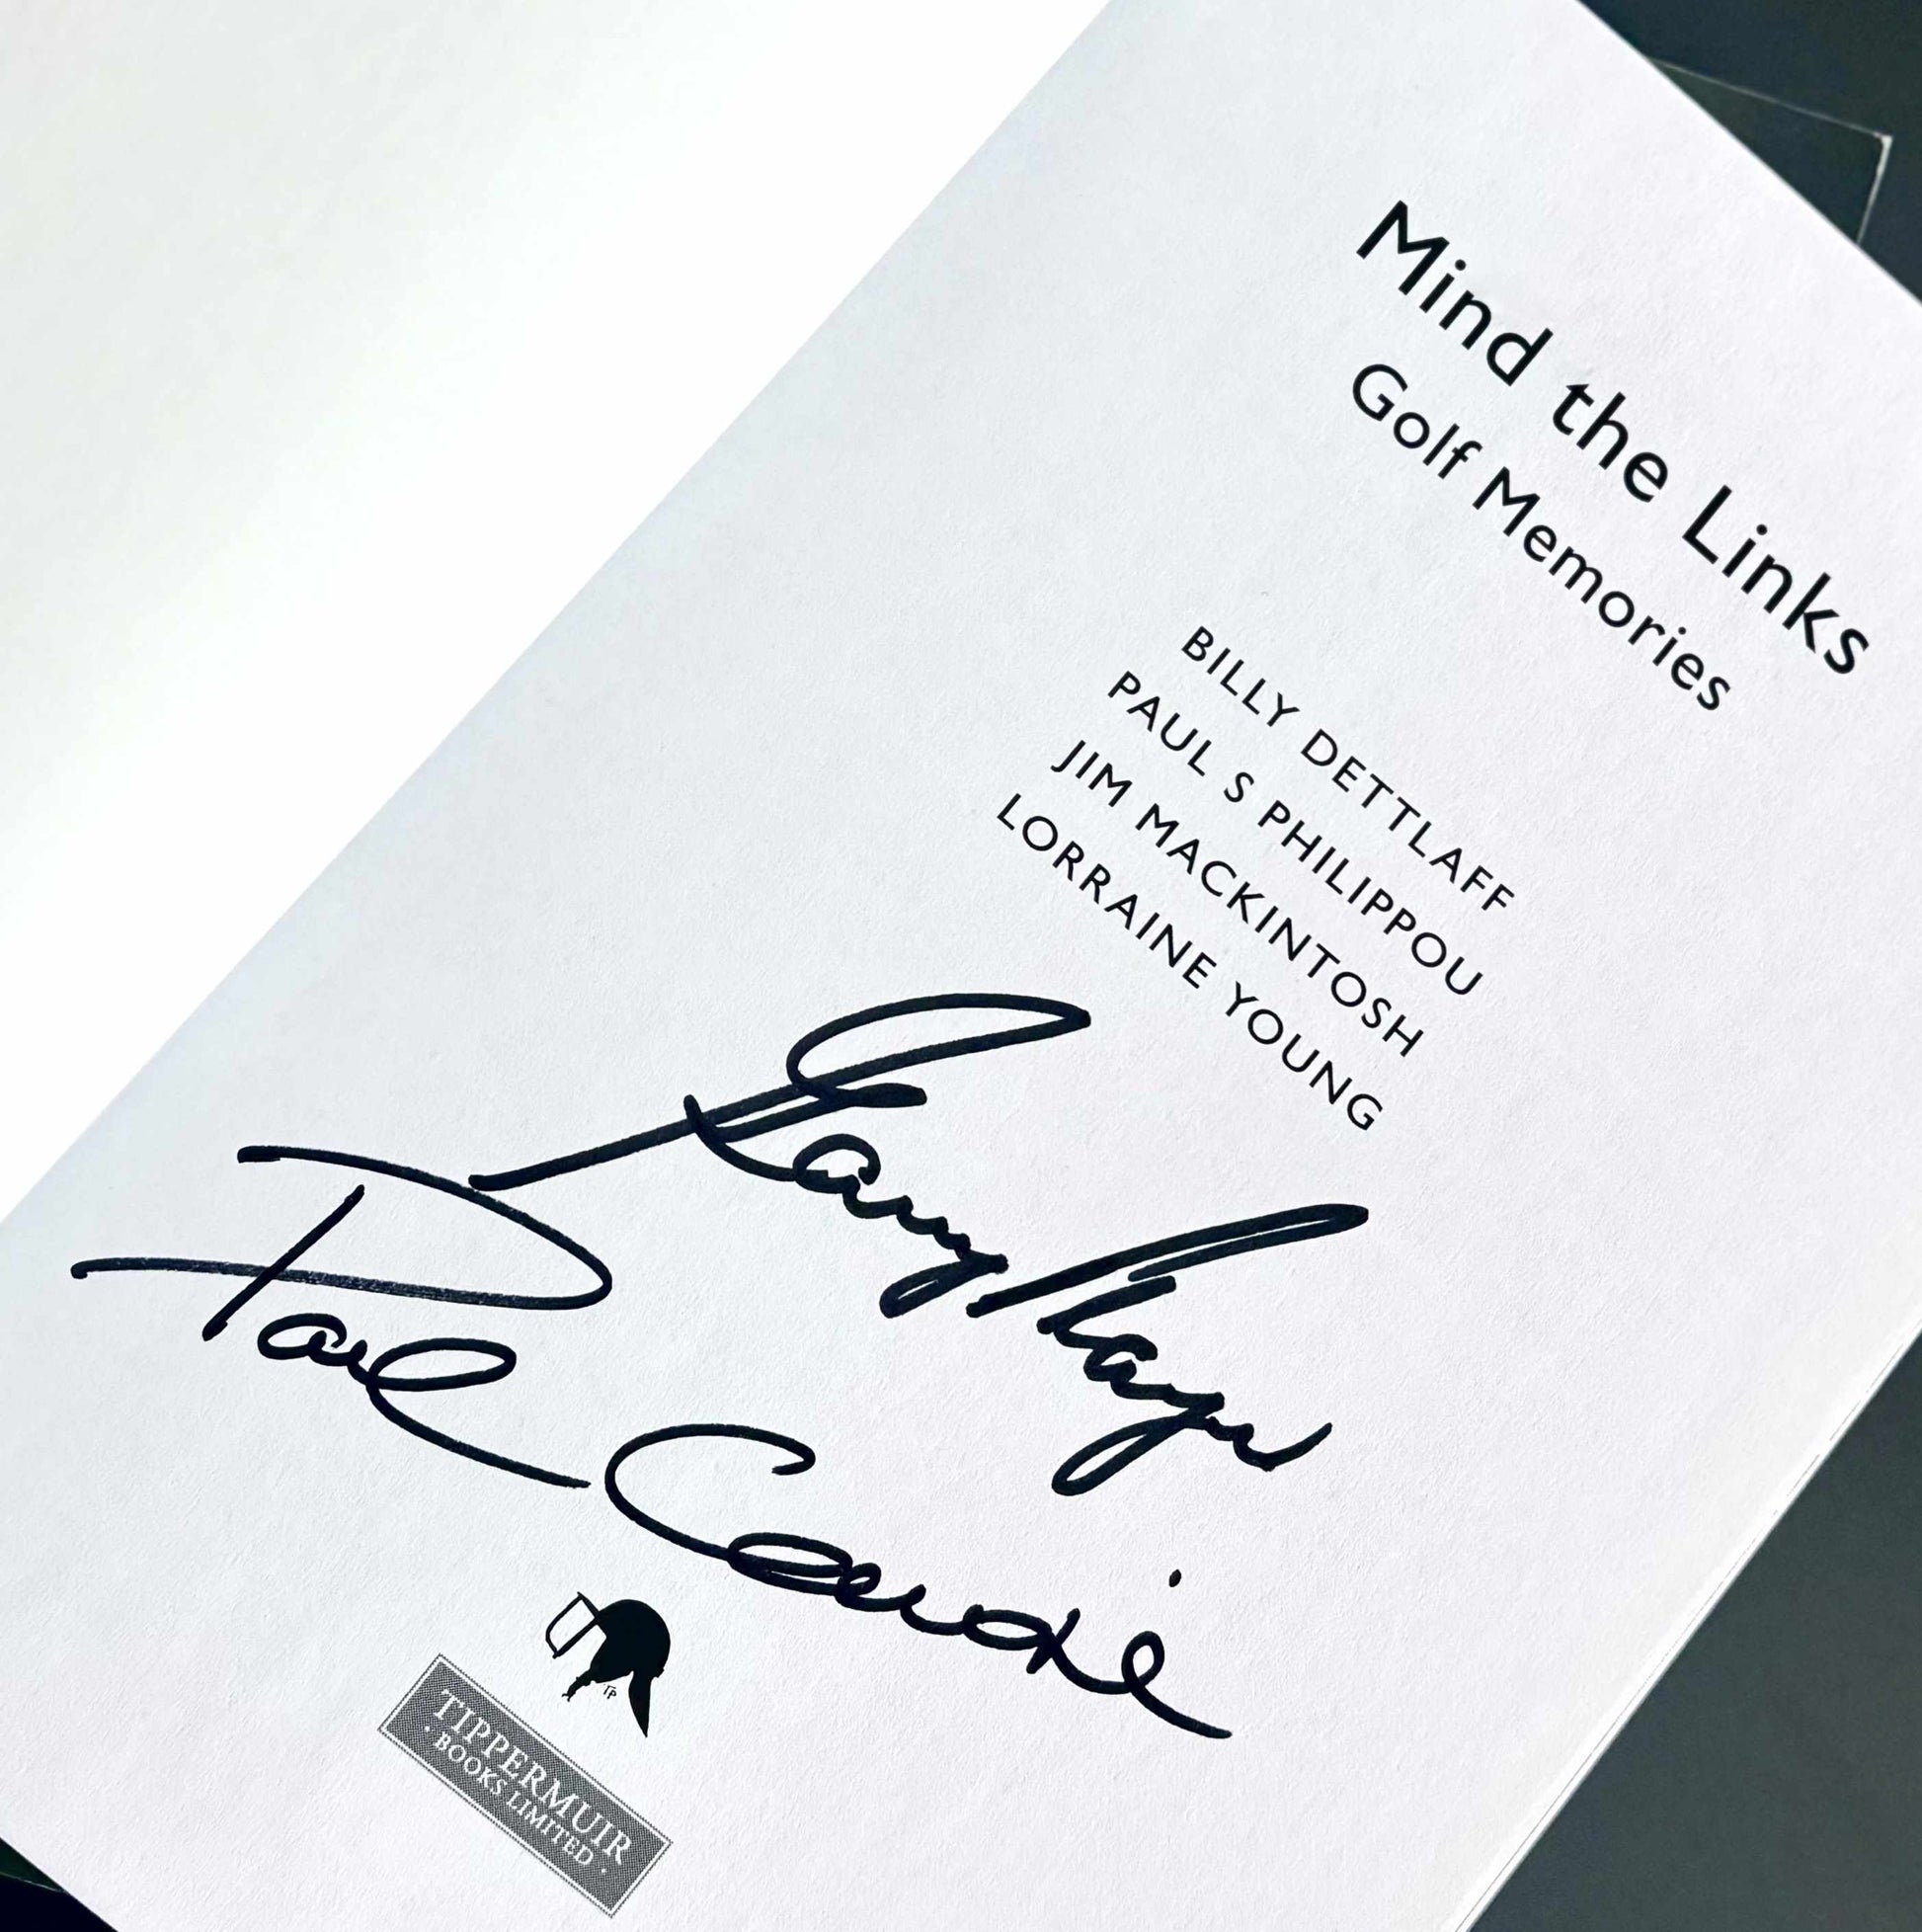 Mind the Links
Golf Memories
BILLY DETTLAFF
PAUL S PHILIPPOU
JIM MACKINTOSH
LORRAINE YOUNG
Gary Player
Paul Lawrie
TIPPERMUIR
· BOOKS LIMITED ·